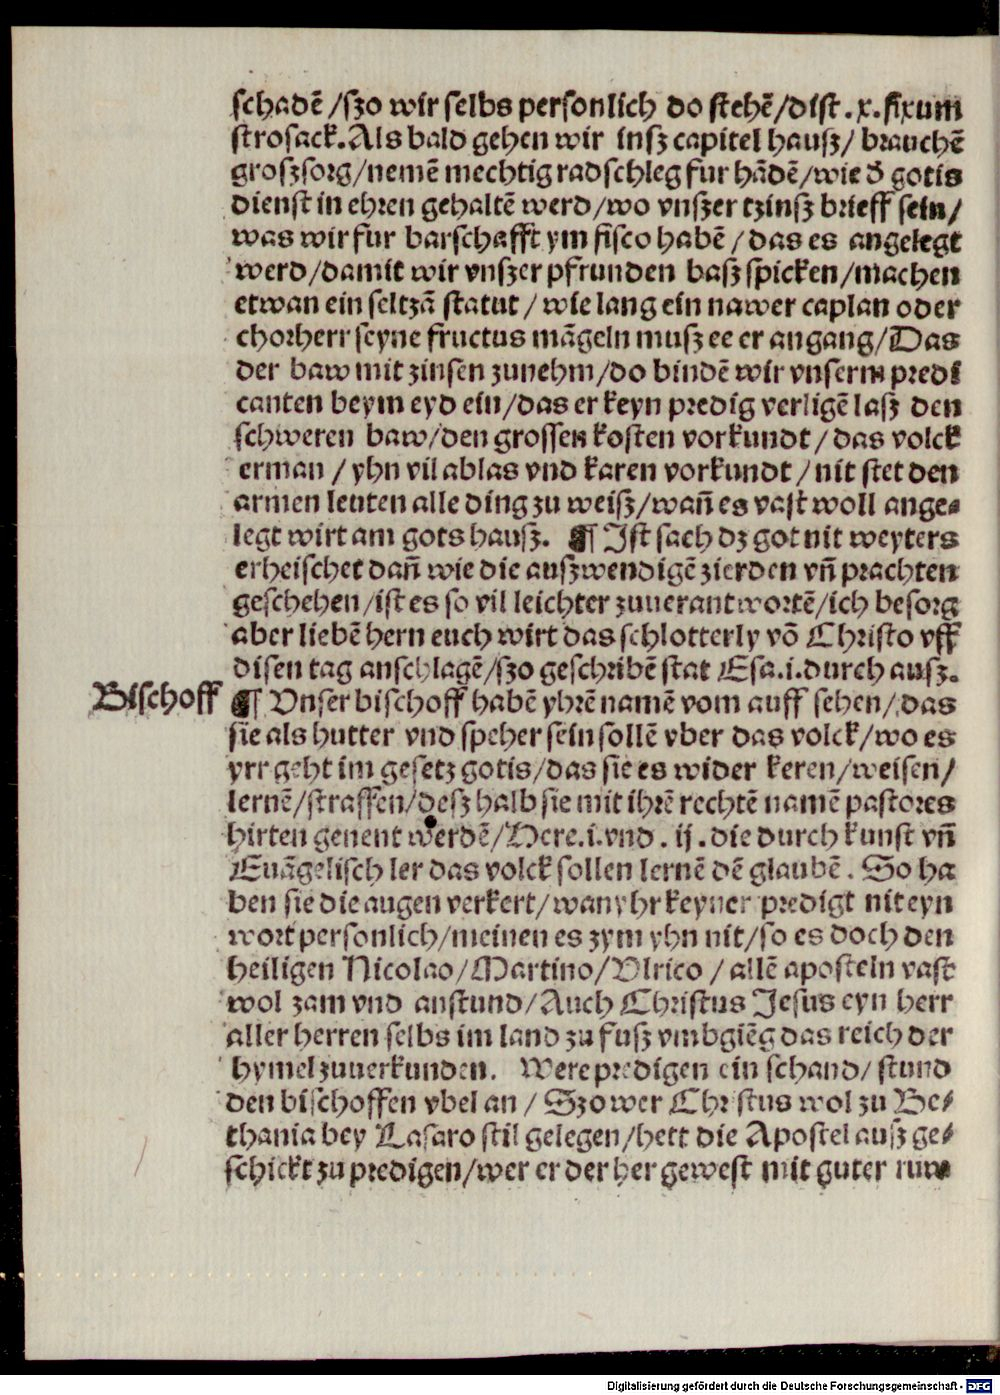 schadẽ /szo wir selbs personlich do stehẽ/dist .x. fixum
strosack. Als bald gehen wir insz capitel hausz/ brauchẽ
groszsorg/nemẽ mechtig radschleg fur hãdẽ/wie d̕ gotis
dienst in ehren gehaltẽ werd/wo vnszer tzinsz brieff sein/
was wir fur barschafft ym fisco habẽ / das es angelegt
werd/damit wir vnszer pfrunden basz spicken/machen
etwan ein seltzã statut / wie lang ein nawer caplan oder
chorherr seyne fructus mãgeln musz ee er angang/Das
der baw mit zinsen zunehm/do bindẽ wir vnserm predi
canten beym eyd ein/das er keyn predig verligẽ lasz den
schweren baw/den grossen kosten vorkundt / das volck
erman / yhn vil ablas vnd karen vorkundt / nit stet den
armen leuten alle ding zu weisz/wañ es vast woll ange-
legt wirt am gots hausz. ¶ Ist sach dz got nit weyters
erheischet dañ wie die auszwendigẽ zierden vñ prachten
geschehen/ist es so vil leichter zuuerantwortẽ/ich besorg
aber liebẽ hern euch wirt das schlotterly võ Christo vff
disen tag anschlagẽ/szo geschribẽ stat Esa.i.durch ausz.
Bischoff ¶ Vnser bischoff habẽ yhrẽ namẽ vom auff sehen/das
sie als hutter vnd speher sein sollẽ vber das volck/wo es
yrr geht im gesetz gotis/das sie es wider keren/weisen/
lernẽ/straffen/desz halb sie mit ihrẽ rechtẽ namẽ pastores
hirten genent werdẽ/Here.i.vnd . ij . die durch kunst vñ
Euãgelisch ler das volck sollen lernẽ dẽ glaubẽ . So ha
ben sie die augen verkert/wan yhr keyner predigt nit eyn
wort personlich/meinen es zym yhn nit/so es doch den
heiligen Nicolao/Martino/Vlrico / allẽ aposteln vast
wol zam vnd anstund/Auch Christus Jesus eyn herr
aller herren selbs im land zu fusz vmbgiẽg das reich der
hymel zuuerkunden. Were predigen ein schand/ stund
den bischoffen vbel an / Szo wer Christus wol zu Be-
thania bey Lasaro stil gelegen/hett die Apostel ausz ge-
schickt zu predigen/wer er der her gewest mit guter ruw
Digitalisierung gefördert durch die Deutsche Forschungsgemeinschaft - DFG